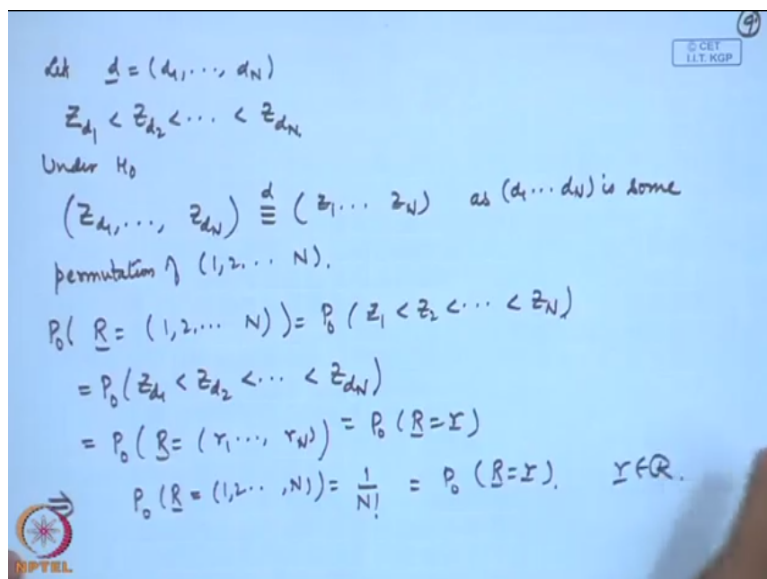 9
© CET
I.I.T. KGP
Let d = (d₁, ..., d_N)
Z_{d₁} < Z_{d₂} < ... < Z_{d_N}
Under H₀
(Z_{d₁}, ..., Z_{d_N}) ≡^d (Z₁ ... Z_N) as (d₁ ... d_N) is some
permutation of (1, 2 ... N).
P₀( R = (1, 2, ... N)) = P₀ ( Z₁ < Z₂ < ... < Z_N)
= P₀ ( Z_{d₁} < Z_{d₂} < ... < Z_{d_N})
= P₀ ( R = (r₁ ..., r_N)) = P₀ ( R = r)
P₀ ( R = (1, 2 ..., N)) = 1/N! = P₀ ( R = r). r ∈ R.
NPTEL